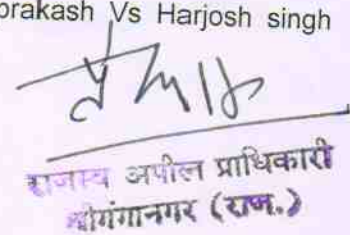 prakash Vs Harjosh singh
राजस्व अपील प्राधिकारी
श्रीगंगानगर (राज.)